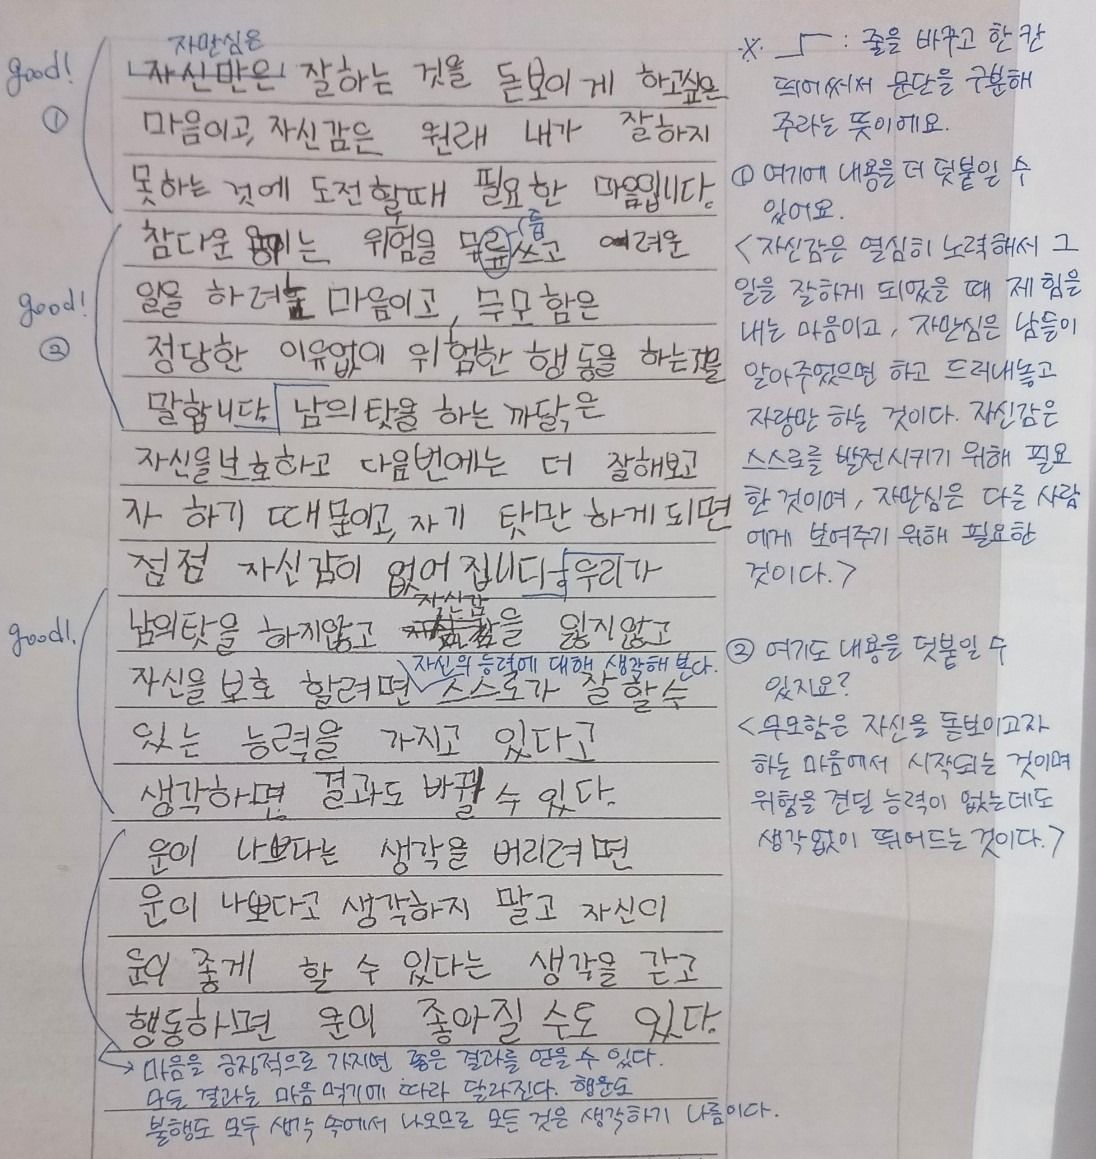 자만심은
good!
①
자신만은 잘하는 것을 돋보이게 하고싶은
마음이고, 자신감은 원래 내가 잘하지
못하는 것에 도전할때 필요한 마음입니다.
good!
②
참다운 용기는 위험을 무릎쓰고 여려운
릅
일을 하려는 마음이고, 무모함은
정당한 이유없이 위험한 행동을 하는것을
말합니다. 남의 탓을 하는 까닭은
자신을 보호하고 다음번에는 더 잘해보고
자 하기 때문이고, 자기 탓만 하게 되면
점점 자신감이 없어 집니다. 우리가
good!
자신감
남의탓을 하지않고 을 잃지않고
자신의 능력에 대해 생각해 본다.
자신을 보호 할려면 스스로가 잘 할 수
있는 능력을 가지고 있다고
생각하면 결과도 바뀔 수 있다.
운이 나쁘다는 생각을 버리려면
운이 나쁘다고 생각하지 말고 자신이
운이 좋게 할 수 있다는 생각을 같고
행동하면 운이 좋아질 수도 있다.
→ 마음을 긍정적으로 가지면 좋은 결과를 얻을 수 있다.
모든 결과는 마음 먹기에 따라 달라진다. 행운도
불행도 모두 생각 속에서 나오므로 모든 것은 생각하기 나름이다.
※ : 줄을 바꾸고 한 칸
띄어써서 문단을 구분해
주라는 뜻이에요.
① 여기에 내용을 더 덧붙일 수
있어요.
<자신감은 열심히 노력해서 그
일을 잘하게 되었을 때 제 힘을
내는 마음이고, 자만심은 남들이
알아주었으면 하고 드러내놓고
자랑만 하는 것이다. 자신감은
스스로를 발전시키기 위해 필요
한 것이며, 자만심은 다른 사람
에게 보여주기 위해 필요한
것이다.>
② 여기도 내용을 덧붙일 수
있지요?
<무모함은 자신을 돋보이고자
하는 마음에서 시작되는 것이며
위험을 견딜 능력이 없는데도
생각없이 뛰어드는 것이다.>